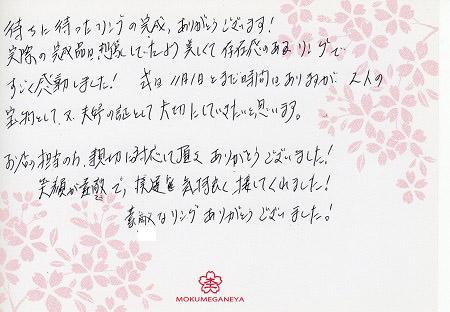 待ちに待ったリングの完成、ありがとうございます!
実際の完成品は想像していたより美しくて存在感のあるリングで
すごく感動しました! 式は11月1日とまだ時間はありますが、2人の
宝物として、又、夫婦の証として大切にしていきたいと思います。
お店の担当の方、親切に対応して頂き ありがとうございました!
笑顔が素敵で、接遇も気持良く接してくれました!
素敵なリングありがとうございました!
MOKUMEGANEYA